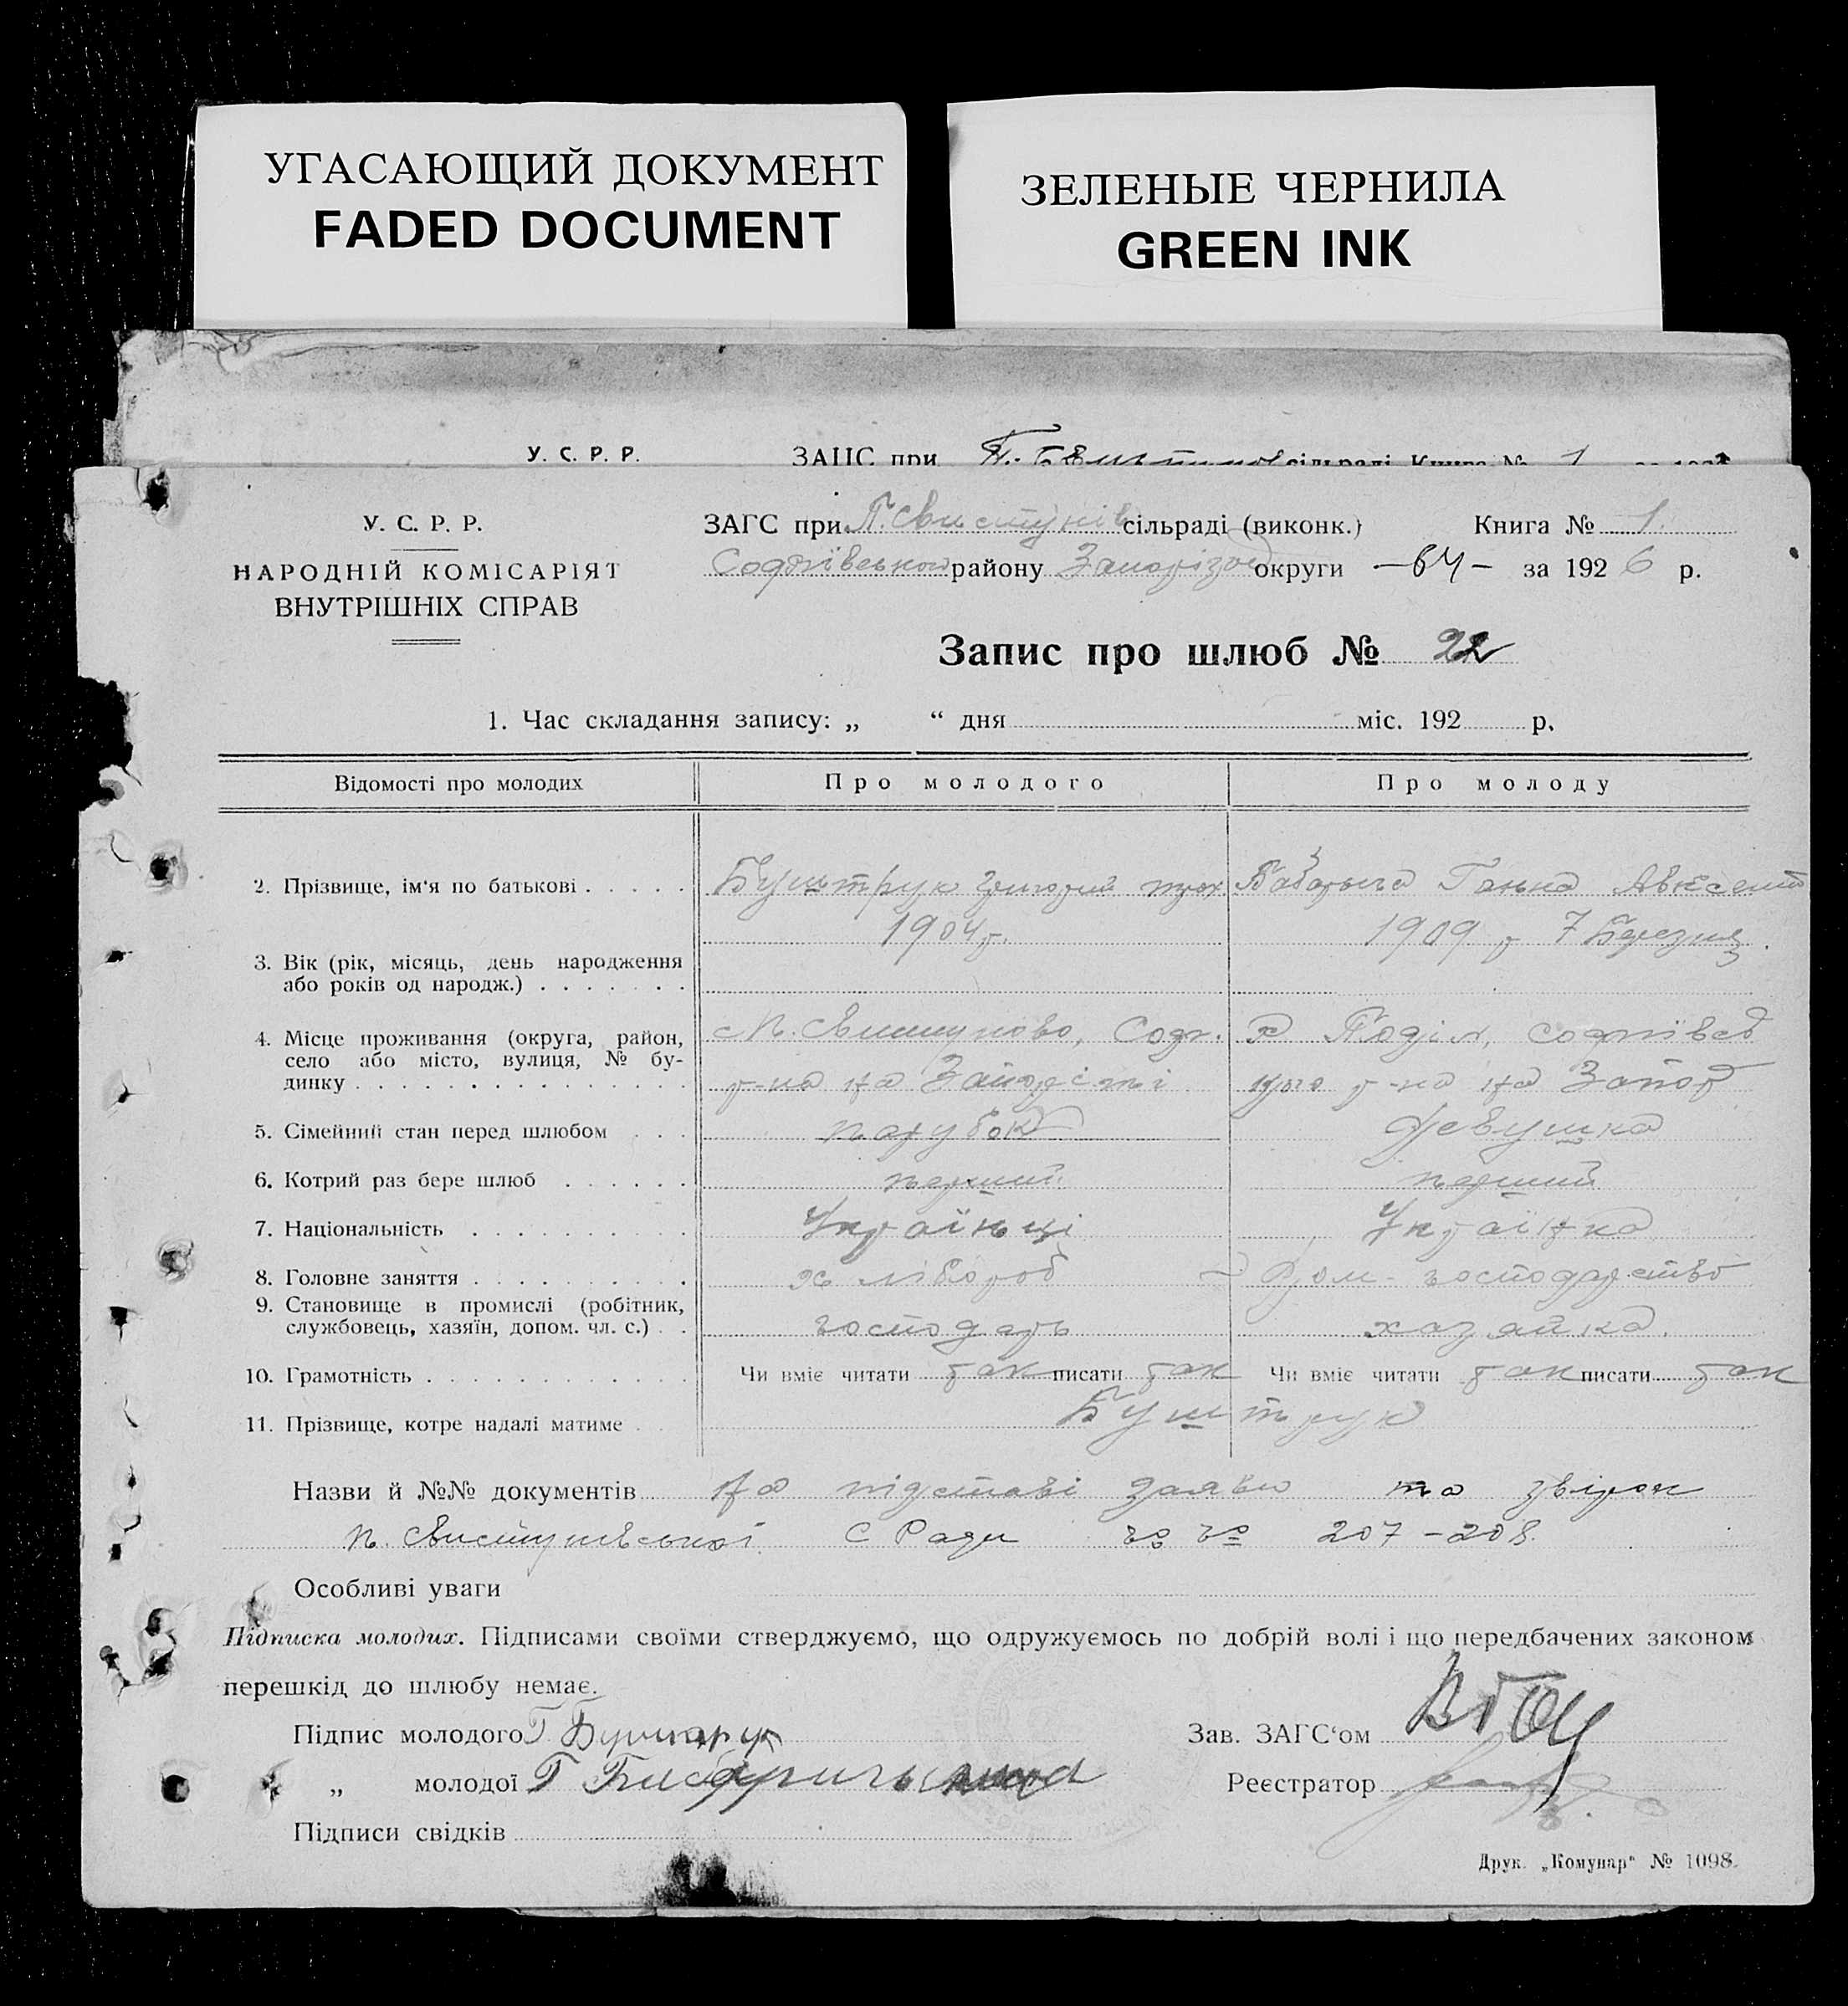 УГАСАЮЩИЙ ДОКУМЕНТ
FADED DOCUMENT
ЗЕЛЕНЫЕ ЧЕРНИЛА
GREEN INK
У. С. Р. Р. ЗАГС при сільраді Книга № 1
У. С. Р. Р.
НАРОДНІЙ КОМІСАРІЯТ
ВНУТРІШНІХ СПРАВ
ЗАГС при П. Свистунів сільраді (виконк.) Книга № 1.
Софіївського району Запорізько округи — 64 — за 1926 р.
Запис про шлюб № 22
1. Час складання запису: „ “ дня міс. 192 р.
Відомості про молодих Про молодого Про молоду
2. Прізвище, ім'я по батькові Буштрук Григорий Ганна Авксент
1904 р. 1909 р 7 Березня.
3. Вік (рік, місяць, день народження
або років од народж.)
4. Місце проживання (округа, район, с П. Свистуново, Соф. х Поділ, Софіївсь
село або місто, вулиця, № бу- р-на на Запоріжжі кого р-на на Запор
динку
5. Сімейний стан перед шлюбом парубок девушка
6. Котрий раз бере шлюб перший перший
7. Національність Українці Українка
8. Головне заняття хлібороб Дом-господарство
9. Становище в промислі (робітник,
службовець, хазяїн, допом. чл. с.) господарь хазяйка.
10. Грамотність Чи вміє читати так писати так Чи вміє читати так писати так
11. Прізвище, котре надалі матиме Буштрук
Назви й №№ документів На підставі заяви та
п. Свистунівської С Ради 207 – 208.
Особливі уваги
Підписка молодих. Підписами своїми стверджуємо, що одружуємось по добрій волі і що передбачених законом
перешкід до шлюбу немає.
Підпис молодого Г Буштрук Зав. ЗАГС‘ом
„ молодої Г Реєстратор
Підписи свідків
Друк. „Комунар“ № 1098.